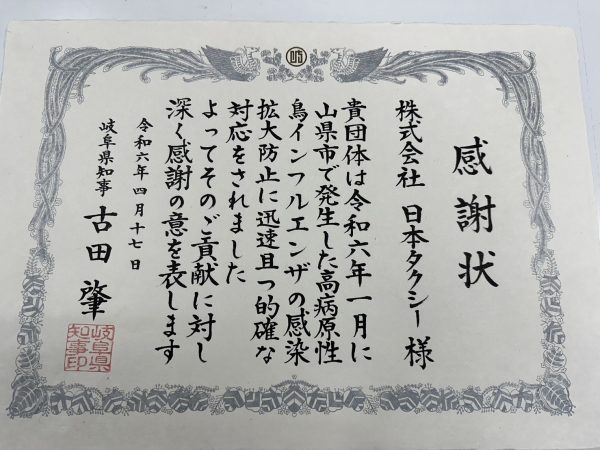 岐
感謝状
株式会社 日本タクシー 様
貴団体は令和六年一月に
山県市で発生した高病原性
鳥インフルエンザの感染
拡大防止に迅速且つ的確な
対応をされました
よってそのご貢献に対し
深く感謝の意を表します
令和六年四月十七日
岐阜県知事 古田 肇
岐阜県
知事印